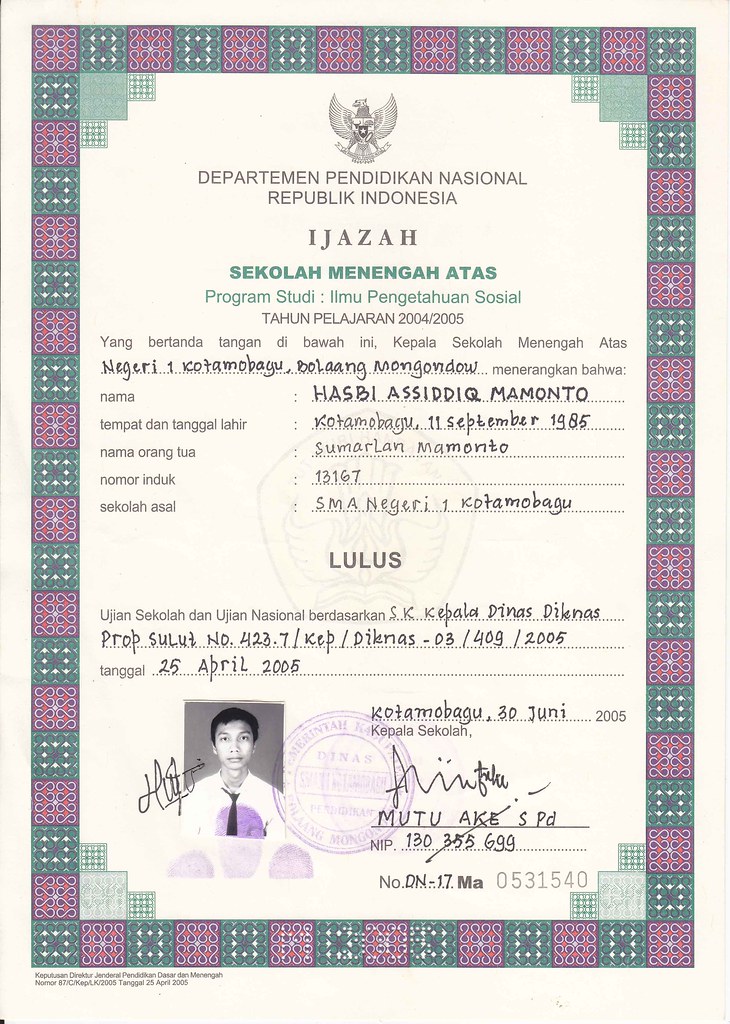 DEPARTEMEN PENDIDIKAN NASIONAL
REPUBLIK INDONESIA
IJAZAH
SEKOLAH MENENGAH ATAS
Program Studi : Ilmu Pengetahuan Sosial
TAHUN PELAJARAN 2004/2005
Yang bertanda tangan di bawah ini, Kepala Sekolah Menengah Atas
Negeri 1 Kotamobagu, Bolaang Mongondow menerangkan bahwa:
nama : HASBI ASSIDDIQ MAMONTO
tempat dan tanggal lahir : Kotamobagu, 11 September 1985
nama orang tua : Sumarlan Mamonto
nomor induk : 13167
sekolah asal : SMA Negeri 1 Kotamobagu
LULUS
Ujian Sekolah dan Ujian Nasional berdasarkan S.K Kepala Dinas Diknas
Prop Sulut No. 423.7/Kep/Diknas-03/409/2005
tanggal 25 April 2005
Kotamobagu, 30 Juni 2005
Kepala Sekolah,
PEMERINTAH
DINAS
PENDIDIKAN
MUTU AKE S Pd
NIP. 130 355 699
No. DN-17 Ma 0531540
Keputusan Direktur Jenderal Pendidikan Dasar dan Menengah
Nomor 87/C/Kep/LK/2005 Tanggal 25 April 2005